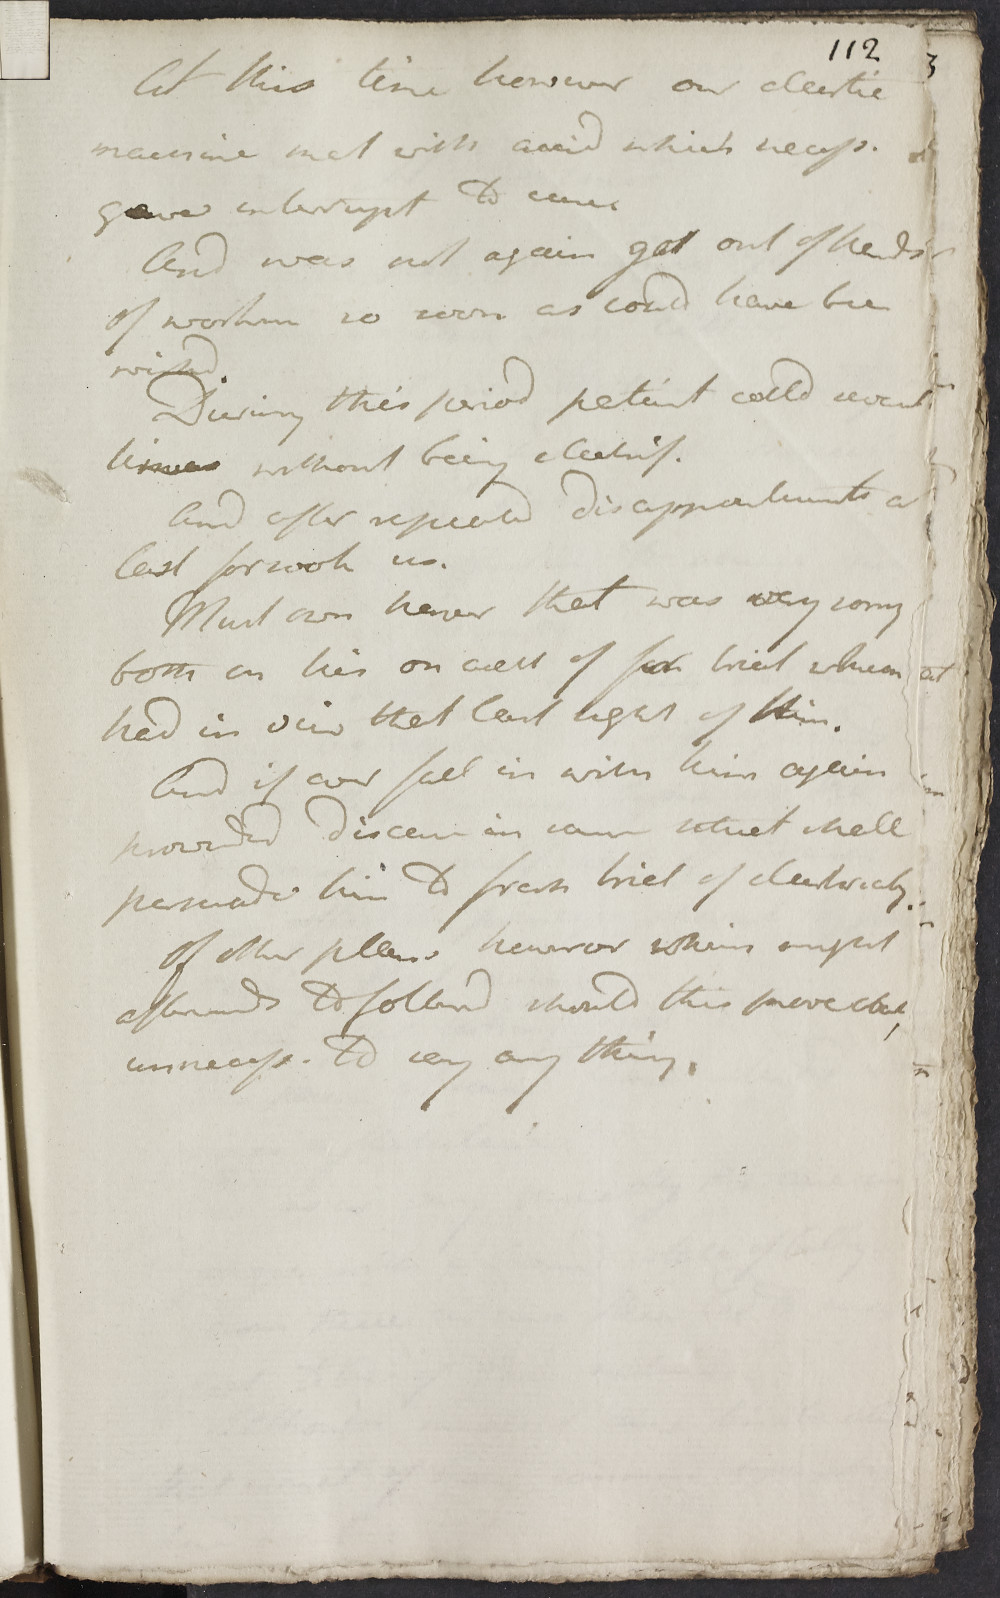 112
At this time however our electric
machine met with accid which necess.
gave interrupt to cure
And was not again got out of hands
of workmn so soon as could have bee
wishd.
During this period patient calld severl
times without being electrif.
And after repeated disappointments a
last forsook us.
Must own hever that was very sorry
both on his on acct of trial when
had in view that lost sight of him.
And if ever fall in with him again
provided disease in same what shall
persuade him to fresh trial of electricity.
Of other plans however which might
afterwards to folld should this prove
unnecess. to say any thing.